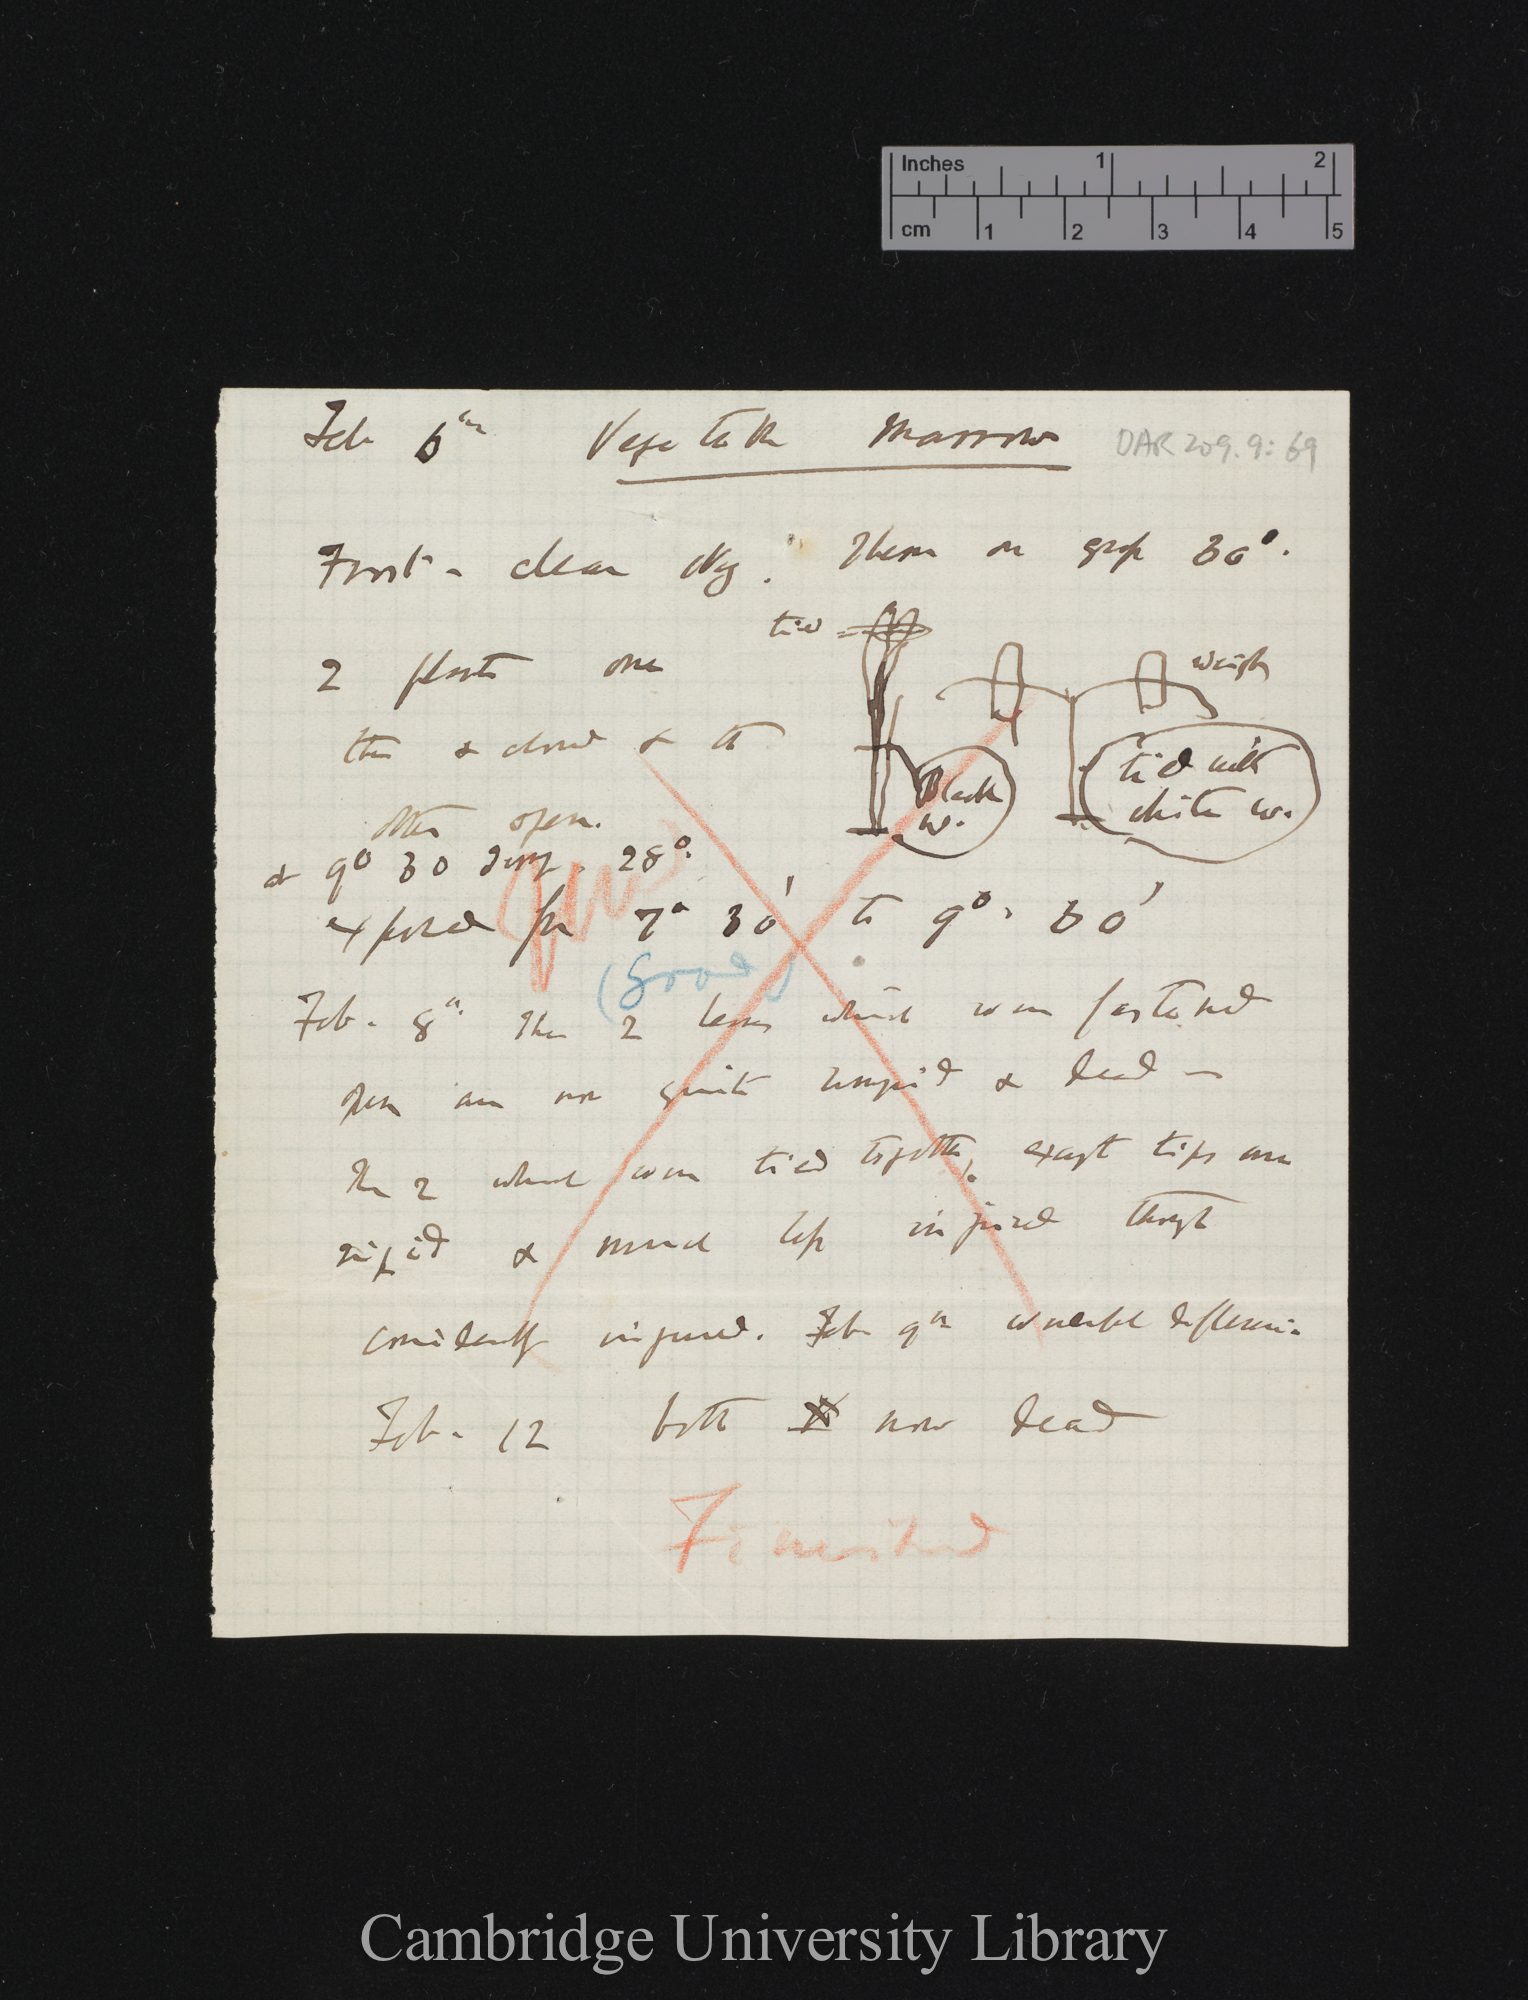 Inches 1 2
cm 1 2 3 4 5
Feb 6th Vegetable Marrow
DAR 209.9: 69
Frost - clear sky. Therm on grass 30°.
tied
2 plants one
weight
thus & closed & the
Black w.
tied with white w.
other open.
at 9° 30 28°.
exposed for 7° 30' to 9° 30'
(Good)
Feb. 8th The 2 leaves which were fastened
open are now quite & dead —
The 2 which were tied together, except tips are
rigid & much less injured though
considerably injured. Feb 9th wonderful difference
Feb. 12 both now dead
Finished
Cambridge University Library